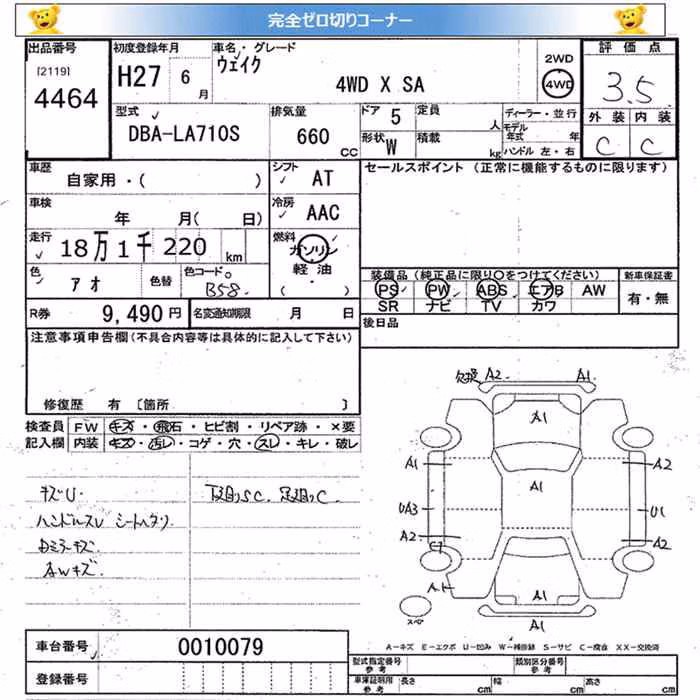 完全ゼロ切りコーナー
出品番号
[2119]
4464
初度登録年月
H27 6月
車名・グレード
ウェイク
4WD X SA
2WD
4WD
評価点
3.5
外装 内装
C C
型式
DBA-LA710S
排気量
660 CC
ドア 5
定員 人
形状 W
積載 kg
ディーラー・並行
モデル年式 年
ハンドル 左・右
車歴
自家用・( )
シフト
AT
車検
年 月( 日)
冷房
AAC
走行
18万1千220 km
燃料
ガソリン
軽油
( ・ )
色
アオ
色替
色コード
B58
セールスポイント (正常に機能するものに限ります)
装備品 (純正品に限り○をつけてください)
PS PW ABS エアB AW
SR ナビ TV カワ
新車保証書
有・無
R券 9,490円
名変通知期限 月 日
後日品
注意事項申告欄(不具合内容等は具体的に記入して下さい)
修復歴 有 [箇所 ]
検査員 FW キズ・飛石・ヒビ割・リペア跡・×要
記入欄 内装 キズ・汚レ・コゲ・穴・スレ・キレ・破レ
キズU.
ハンドルスレ シートヘタリ.
Dミラーキズ
AWキズ.
下廻りSC. 足廻りC.
欠損 A2 A1
A1
A1 A2
A1
UA3 U1
A2 A2
A1
A1
スペア
A1
A-キズ E-エクボ U-凹み W-補修跡 S-サビ C-腐食 XX-交換済
車台番号 0010079
登録番号
型式指定番号 参考
類別区分番号 参考
車庫証明用 参考 長さ cm 幅 cm 高さ cm